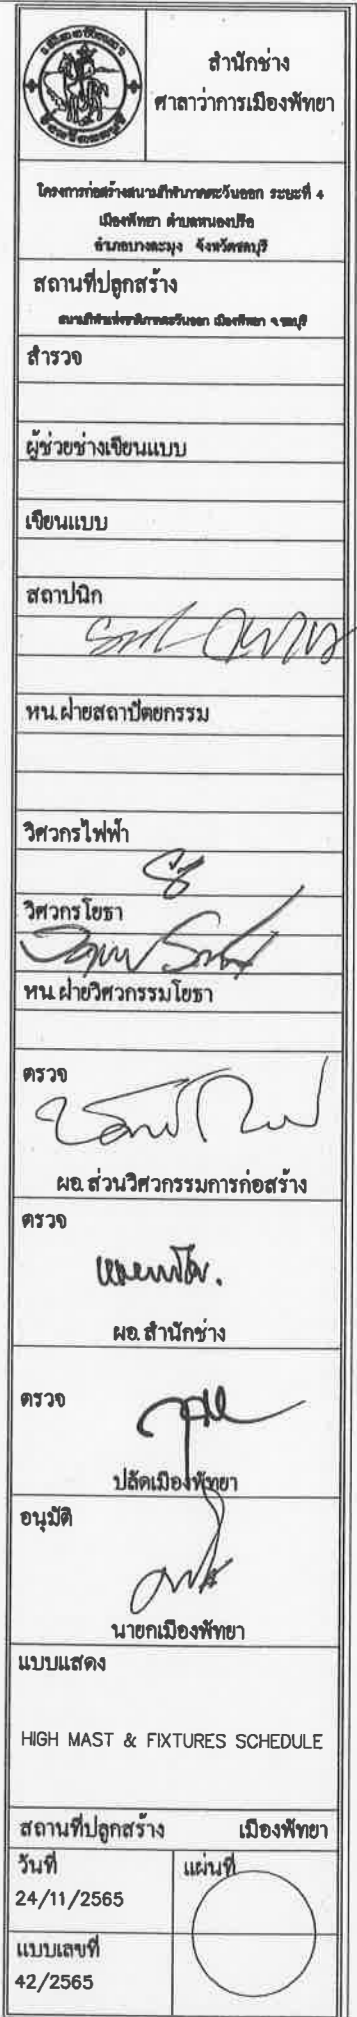 สำนักช่าง
ศาลาว่าการเมืองพัทยา
โครงการก่อสร้างสนามกีฬาภาคตะวันออก ระยะที่ 4
เมืองพัทยา ตำบลหนองปรือ
อำเภอบางละมุง จังหวัดชลบุรี
สถานที่ปลูกสร้าง
สนามกีฬาแห่งชาติภาคตะวันออก เมืองพัทยา จ.ชลบุรี
สำรวจ
ผู้ช่วยช่างเขียนแบบ
เขียนแบบ
สถาปนิก
หน.ฝ่ายสถาปัตยกรรม
วิศวกรไฟฟ้า
วิศวกรโยธา
หน.ฝ่ายวิศวกรรมโยธา
ตรวจ
ผอ.ส่วนวิศวกรรมการก่อสร้าง
ตรวจ
ผอ.สำนักช่าง
ตรวจ
ปลัดเมืองพัทยา
อนุมัติ
นายกเมืองพัทยา
แบบแสดง
HIGH MAST & FIXTURES SCHEDULE
สถานที่ปลูกสร้าง เมืองพัทยา
วันที่
24/11/2565
แผ่นที่
แบบเลขที่
42/2565